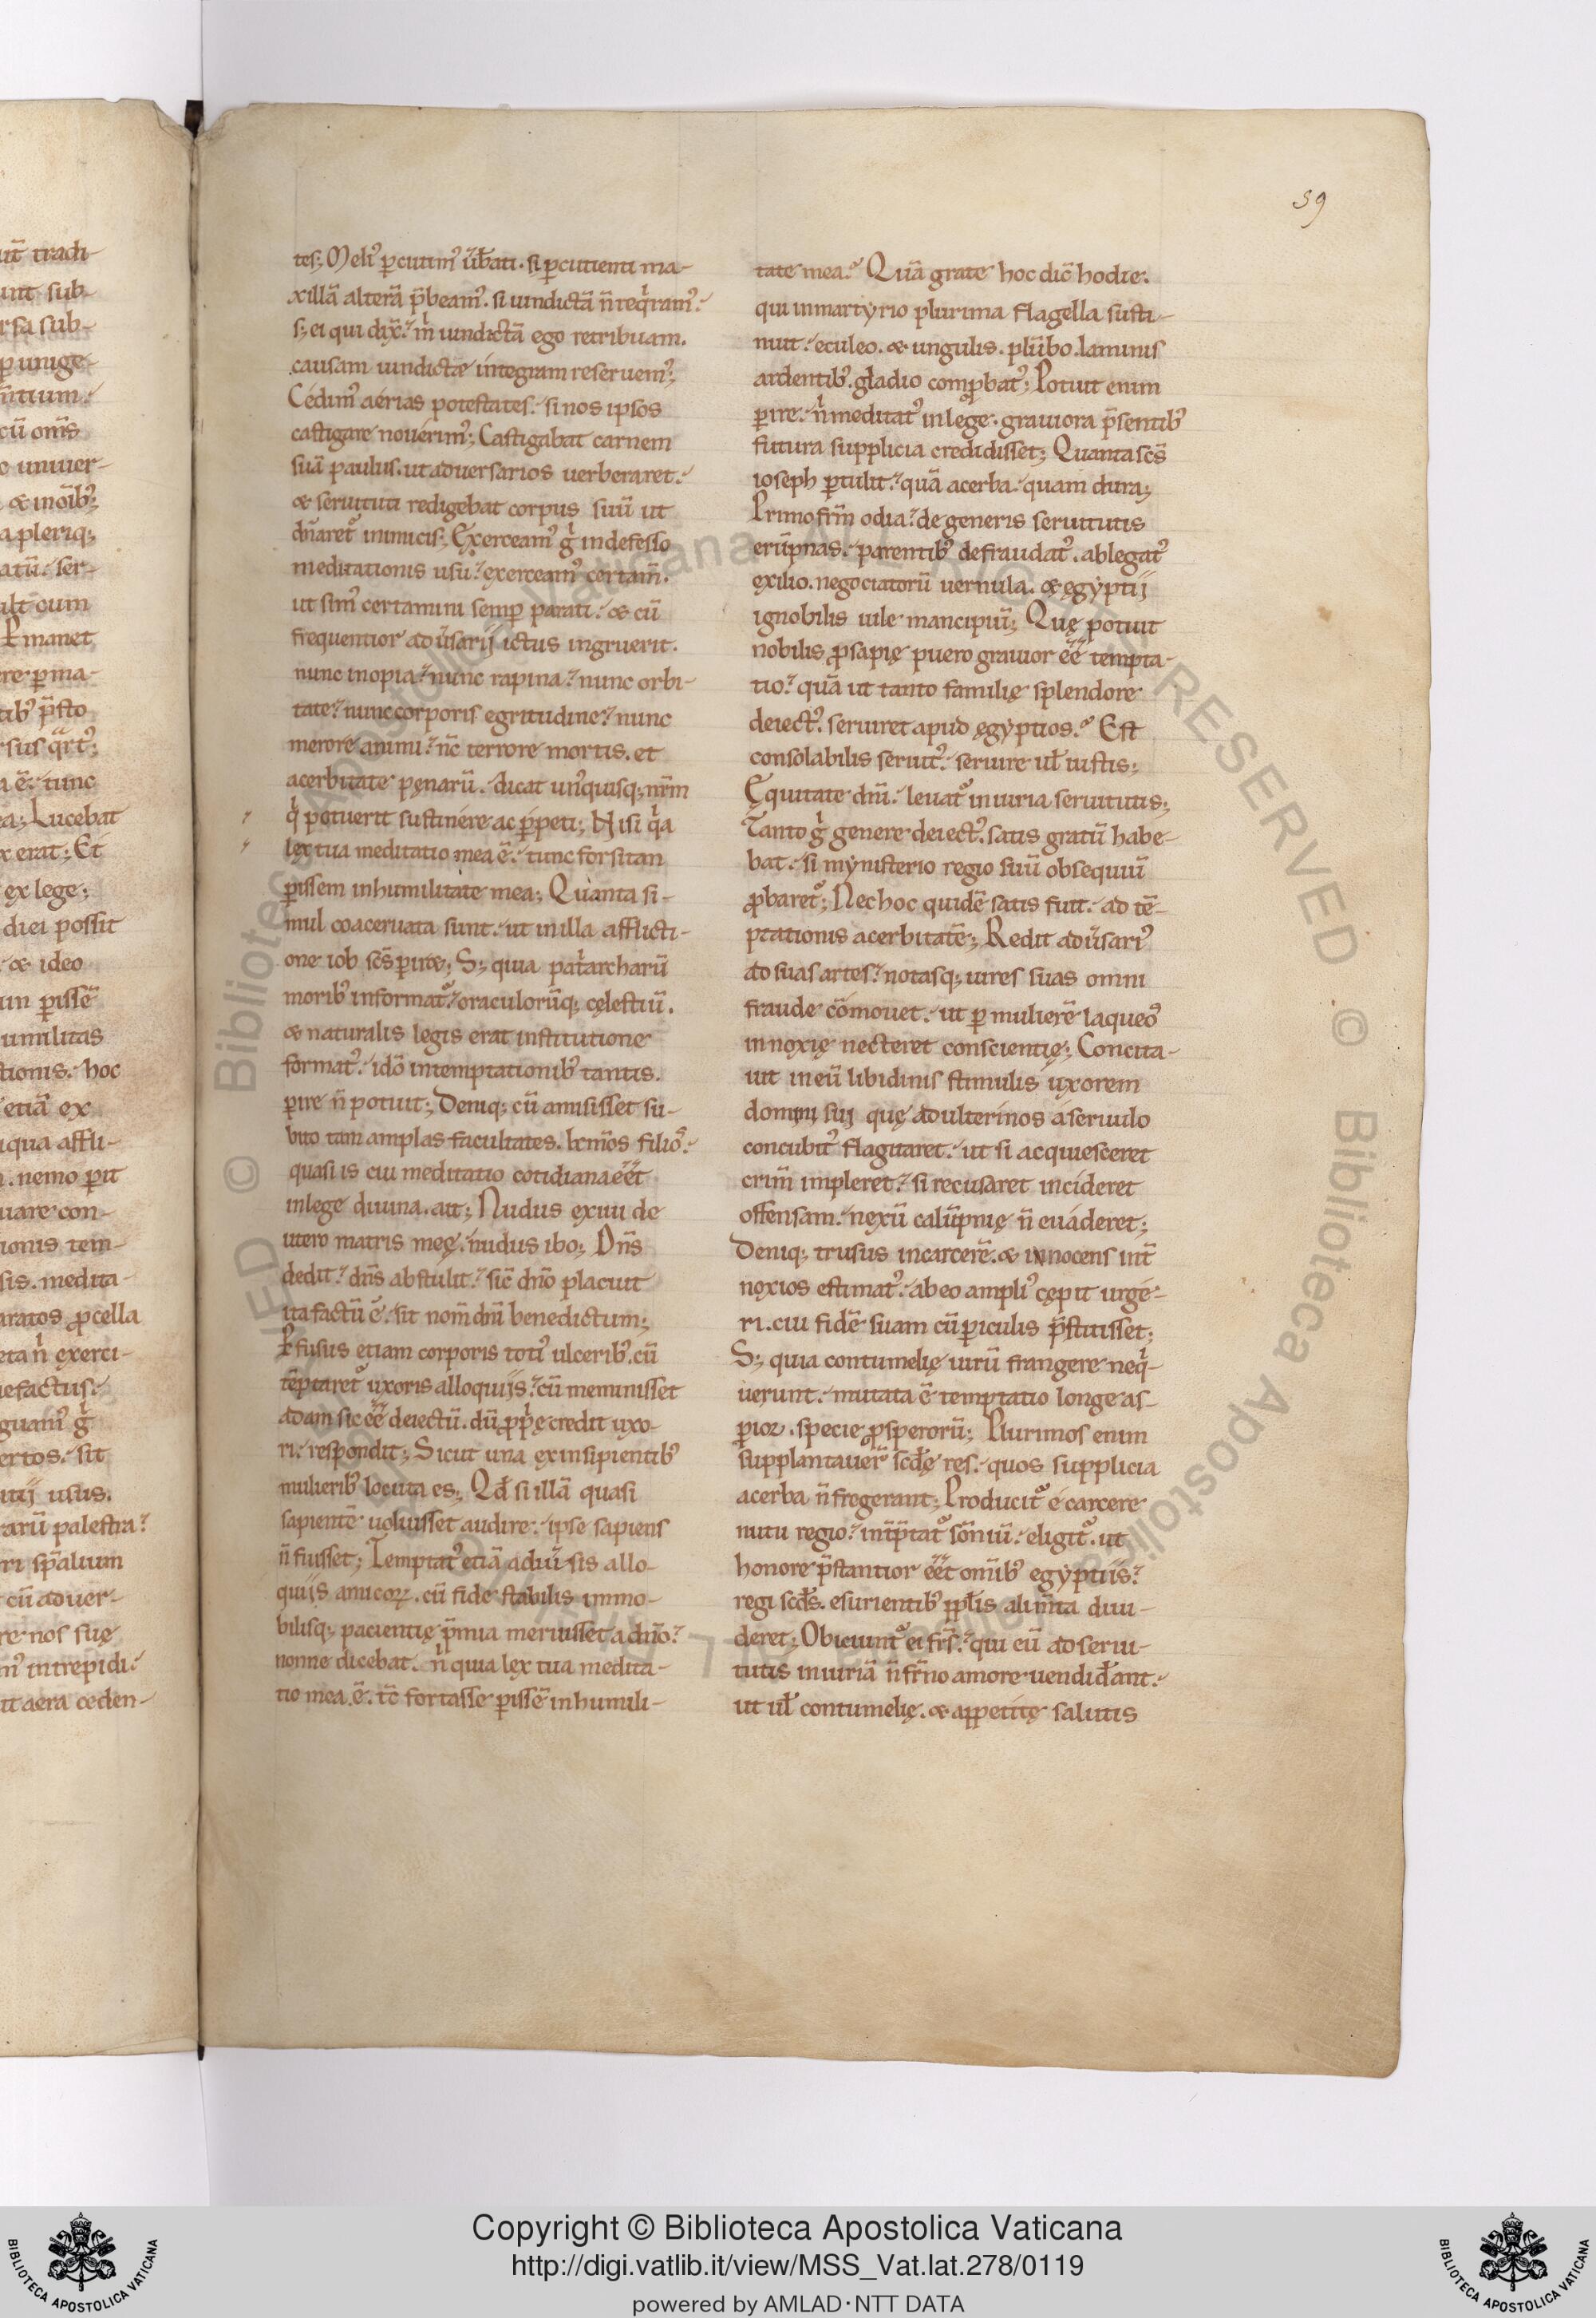 39
tes; Meliꝰ ꝑcutimꝰ ūb̄ati. si ꝑcutienti ma-
xillā alterā p̄beamꝰ. si uindictā n̄ reqͥramꝰ.
s; ei qui dix̄. mͥ uindictā ego retribuam.
causam uindictæ integram reseruemꝰ;
Cédimꝰ aérias potestates. si nos ipsos
castigare nouérimꝰ; Castigabat carnem
suā paulus. ut aduersarios uerberaret.
& seruituti redigebat corpus suū ut
dn̄aret᷑ inimicis; Exerceamꝰ gͥ indefesso
meditationis usu. exerceamꝰ certam̄.
ut simꝰ certamini semꝑ parati. & cū
frequentior adūsarij ictus ingruerit.
nunc inopia. nunc rapina. nunc orbi-
tate. nunc corporis egritudine. nunc
merore animi. nc̄ terrore mortis. et
acerbitate pęnarū. dicat unꝰquisq; nr̄m
qͥ potuerit sustinére ac ꝑpeti; Nisi qͥa
lex tua meditatio mea ē. tunc forsitan
ꝑissem in humilitate mea; Quanta si-
mul coaceruata sunt. ut in illa afflicti-
one iob sc̄s ꝑiret; S; quia patͥarcharū
moribꝰ informat᷑. oraculorūq; cęlestiū.
& naturalis legis erat institutione
formatꝰ. idō in temptationibꝰ tantis.
ꝑire n̄ potuit; Deniq; cū amisisset su-
bito tam amplas facultates. &cm̄os filioꝰ.
quasi is cui meditatio cotidiana ēēt
in lege diuina. ait; Nudus exiui de
utero matris meę. nudus ibo; Dn̄s
dedit. dn̄s abstulit. sic̄ dn̄o placuit
ita factū ē. sit nom̄ dn̄i benedictum;
Ꝑfusus etiam corporis totiꝰ ulceribꝰ. cū
tēptaret᷑ uxoris alloquijs. cū meminisset
adam sic ēē deiectū. dū ꝓpͥę credit uxo-
ri. respondit; Sicut una ex insipientibꝰ
mulieribꝰ locuta es; Qd̄ si illā quasi
sapientē uoluisset audire. ipse sapiens
n̄ fuisset; Temptatꝰ etiā aduersis allo-
quijs amicoꝝ. cū fide stabilis immo-
bilisq; pacientię p̄mia meruisset a dn̄o.
nonne dicebat. nͥ quia lex tua medita-
tio mea. ē. tc̄ fortasse ꝑissē in humili-
tate mea. Quā grate hoc dic̄ hodie.
qui in martyrio plurima flagella susti-
nuit. eculeo. & ungulis. plūbo. laminis
ardentibꝰ. gladio comꝓbatꝰ; Potuit enim
ꝑire. nͥ meditatꝰ in lege. grauiora p̄sentibꝰ
futura supplicia credidisset; Quanta sc̄s
ioseph ꝑtulit. quā acerba. quam dura;
Primo fr̄m odia. degeneris seruitutis
erūpnas. parentibꝰ defraudatꝰ. ablegatꝰ
exilio. negociatorū uernula. & ęgyptij
ignobilis uile mancipiū; Quę potuit
nobilis ꝓsapię puero grauior ēē tempta-
tio. quā ut tanto familię splendore
deiectꝰ. seruiret apud ęgyptios. Est
consolabilis seruitꝰ. seruire ul̄ iustis;
Ęquitate dn̄i. leuat᷑ iniuria seruitutis;
Tanto gͥ genere deiectꝰ. satis gratū habe-
bat. si mynisterio regio suū obsequiū
ꝓbaret᷑; Nec hoc quidē satis fuit. ad tē-
ptationis acerbitatē; Redit adūsariꝰ
ad suas artes. notasq; uires suas omni
fraude cōmouet. ut ꝑ mulierē laqueoꝰ
innoxię necteret conscientię; Concita-
uit in eū libidinis stimulis uxorem
domini sui quę adulterinos a seruulo
concubitꝰ flagitaret. ut si acquiesceret
crim̄ impleret. si recusaret incideret
offensam. nexū calūpnię n̄ euáderet;
Deniq; trusus in carcerē. & innocens int̄
noxios estimatꝰ. ab eo ampliꝰ cępit urgé-
ri. cui fidē suam cū ꝑiculis p̄stitisset;
S; quia contumelię uirū frangere neqͥ-
uerunt. mutata ē temptatio longe as-
ꝑior. specie ꝓsperorū; Plurimos enim
supplantauer᷑ scd̄ę res. quos supplicia
acerba n̄ fregerant; Producit᷑ é carcere
nutu regio. int̄p̄tat᷑ sōniū. eligit᷑. ut
honore p̄stantior ēēt omībꝰ egyptiis.
regi scd̄s. esurientibꝰ ppl̄is alim̄ta diui-
deret; Obiciunt᷑ ei fr̄s. qui eū ad serui-
tutis iniuriā n̄ fr̄no amore uendid̄ant.
ut ul̄ contumelię. & appetitę salutis
Copyright © Biblioteca Apostolica Vaticana
http://digi.vatlib.it/view/MSS_Vat.lat.278/0119
powered by AMLAD·NTT DATA